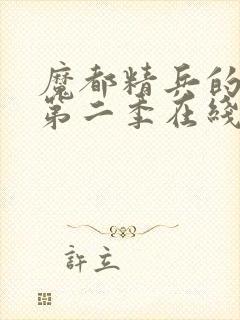 魔都精兵的
第二季在綫
許立